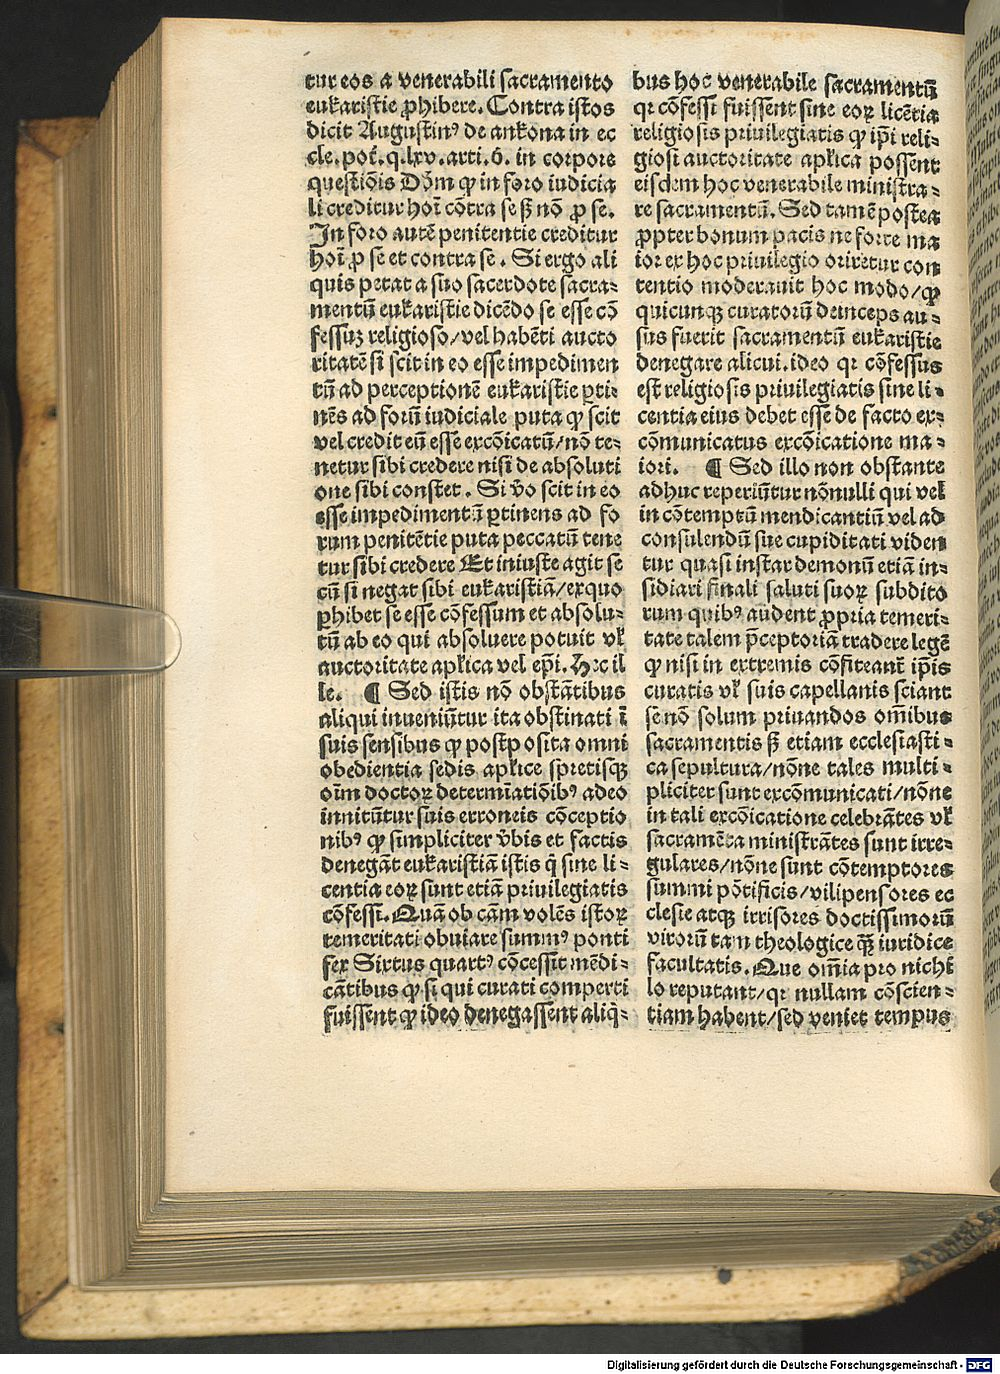 tur eos a venerabili sacramento
eukaristie ꝓhibere. Contra istos
dicit Augustinꝰ de ankona in ec
cle. pot̄. q. lxv. arti. ō. in corpore
questiōis Dōm ꝙ in foro iudicia
li creditur hoī cōtra se sꝫ nō ꝓ se.
In foro autē penitentie creditur
hoī ꝓ se et contra se. Si ergo ali
quis petat a suo sacerdote sacra-
mentū eukaristie dicēdo se esse cō
fessuꝫ religioso/vel habēti aucto
ritatē si scit in eo esse impedimen
tū ad perceptionē eukaristie ꝑti-
nēs ad forū iudiciale puta ꝙ scit
vel credit eū esse excōicatū/nō te-
netur sibi credere nisi de absoluti
one sibi constet. Si v̄o scit in eo
esse impedimentū ꝑtinens ad fo
rum penitētie puta peccatū tene
tur sibi credere Et iniuste agit se
cū si negat sibi eukaristiā/exquo
ꝓhibet se esse cōfessum et absolu-
tū ab eo qui absoluere potuit vł
auctoritate aplica vel ep̄i. Hec il
le. ¶ Sed istis nō obstātibus
aliqui inueniūtur ita obstinati ī
suis sensibus ꝙ postposita omni
obedientia sedis aplice spretisqꝫ
oīm doctoꝝ determīatiōibꝰ adeo
innitūtur suis erroneis cōceptio
nibꝰ ꝙ simpliciter v̄bis et factis
denegāt eukaristiā istis q̄ sine li-
centia eoꝝ sunt etiā priuilegiatis
cōfessi. Quā ob cām volēs istoꝝ
temeritati obuiare summꝰ ponti
fex Sixtus quartꝰ cōcessit mēdi-
cātibus ꝙ si qui curati comperti
fuissent ꝙ ideo denegassent aliq̄-
bus hoc venerabile sacramentū
qꝛ cōfessi fuissent sine eoꝝ licētia
religiosis priuilegiatis ꝙ ip̄i reli-
giosi auctoritate aplica possent
eisdem hoc venerabile ministra-
re sacramentū. Sed tamē postea
ꝓpter bonum pacis ne forte ma
ior ex hoc priuilegio oriretur con
tentio moderauit hoc modo/ꝙ
quicunqꝫ curatorū deinceps au-
sus fuerit sacramentū eukaristie
denegare alicui. ideo qꝛ cōfessus
est religiosis priuilegiatis sine li-
centia eius debet esse de facto ex-
cōmunicatus excōicatione ma-
iori. ¶ Sed illo non obstante
adhuc reperiūtur nōnulli qui vel
in cōtemptū mendicantiū vel ad
consulendū sue cupiditati viden
tur quasi instar demonū etiā in-
sidiari finali saluti suoꝝ subdito
rum quibꝰ audent ꝓpria temeri-
tate talem p̄ceptoriā tradere legē
ꝙ nisi in extremis cōfiteant̄ ip̄is
curatis vł suis capellanis sciant
se nō solum priuandos om̄ibus
sacramentis sꝫ etiam ecclesiasti-
ca sepultura/nōne tales multi-
pliciter sunt excōmunicati/nōne
in tali excōicatione celebrātes vł
sacramēta ministrātes sunt irre-
gulares/nōne sunt cōtemptores
summi pōtificis/vilipensores ec
clesie atqꝫ irrisores doctissimorū
virorū tam theologice qꝫ̄ iuridice
facultatis. Que om̄ia pro nichi
lo reputant/qꝛ nullam cōscien-
tiam habent/sed veniet tempus
Digitalisierung gefördert durch die Deutsche Forschungsgemeinschaft - DFG